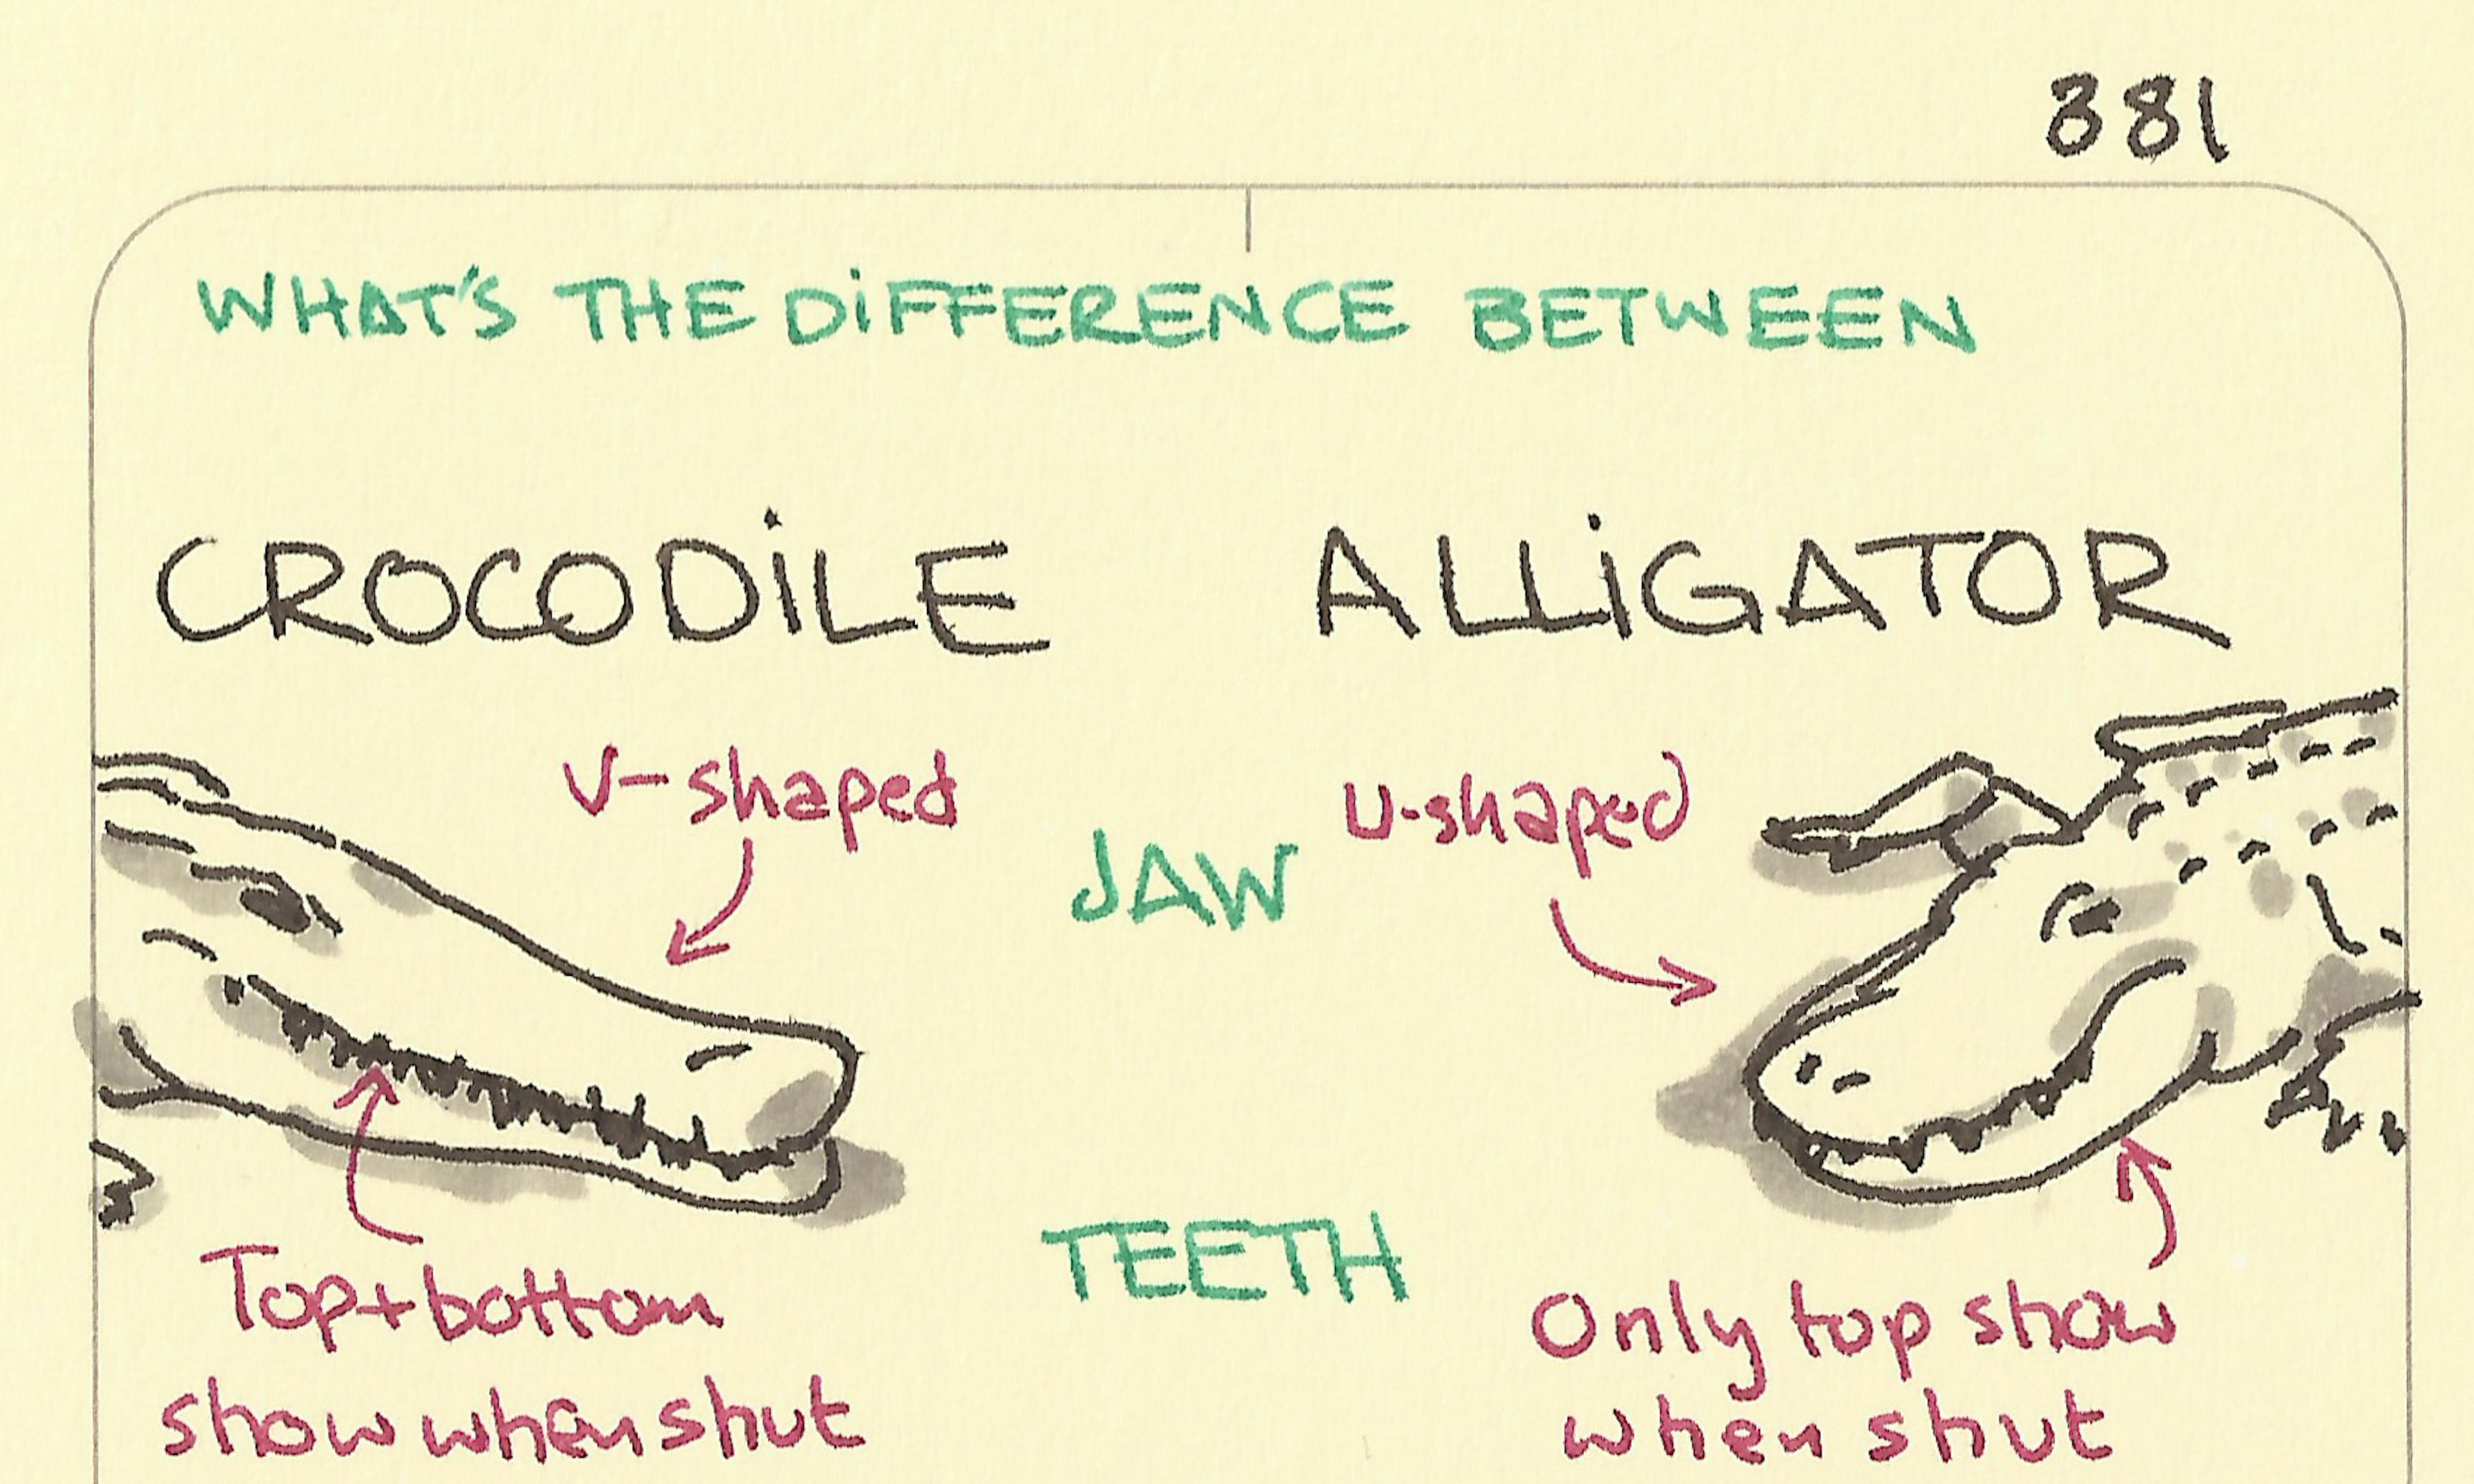 381
WHAT'S THE DIFFERENCE BETWEEN
CROCODILE ALLIGATOR
V-shaped U-shaped
JAW
TEETH
Top+bottom Only top show
show when shut when shut